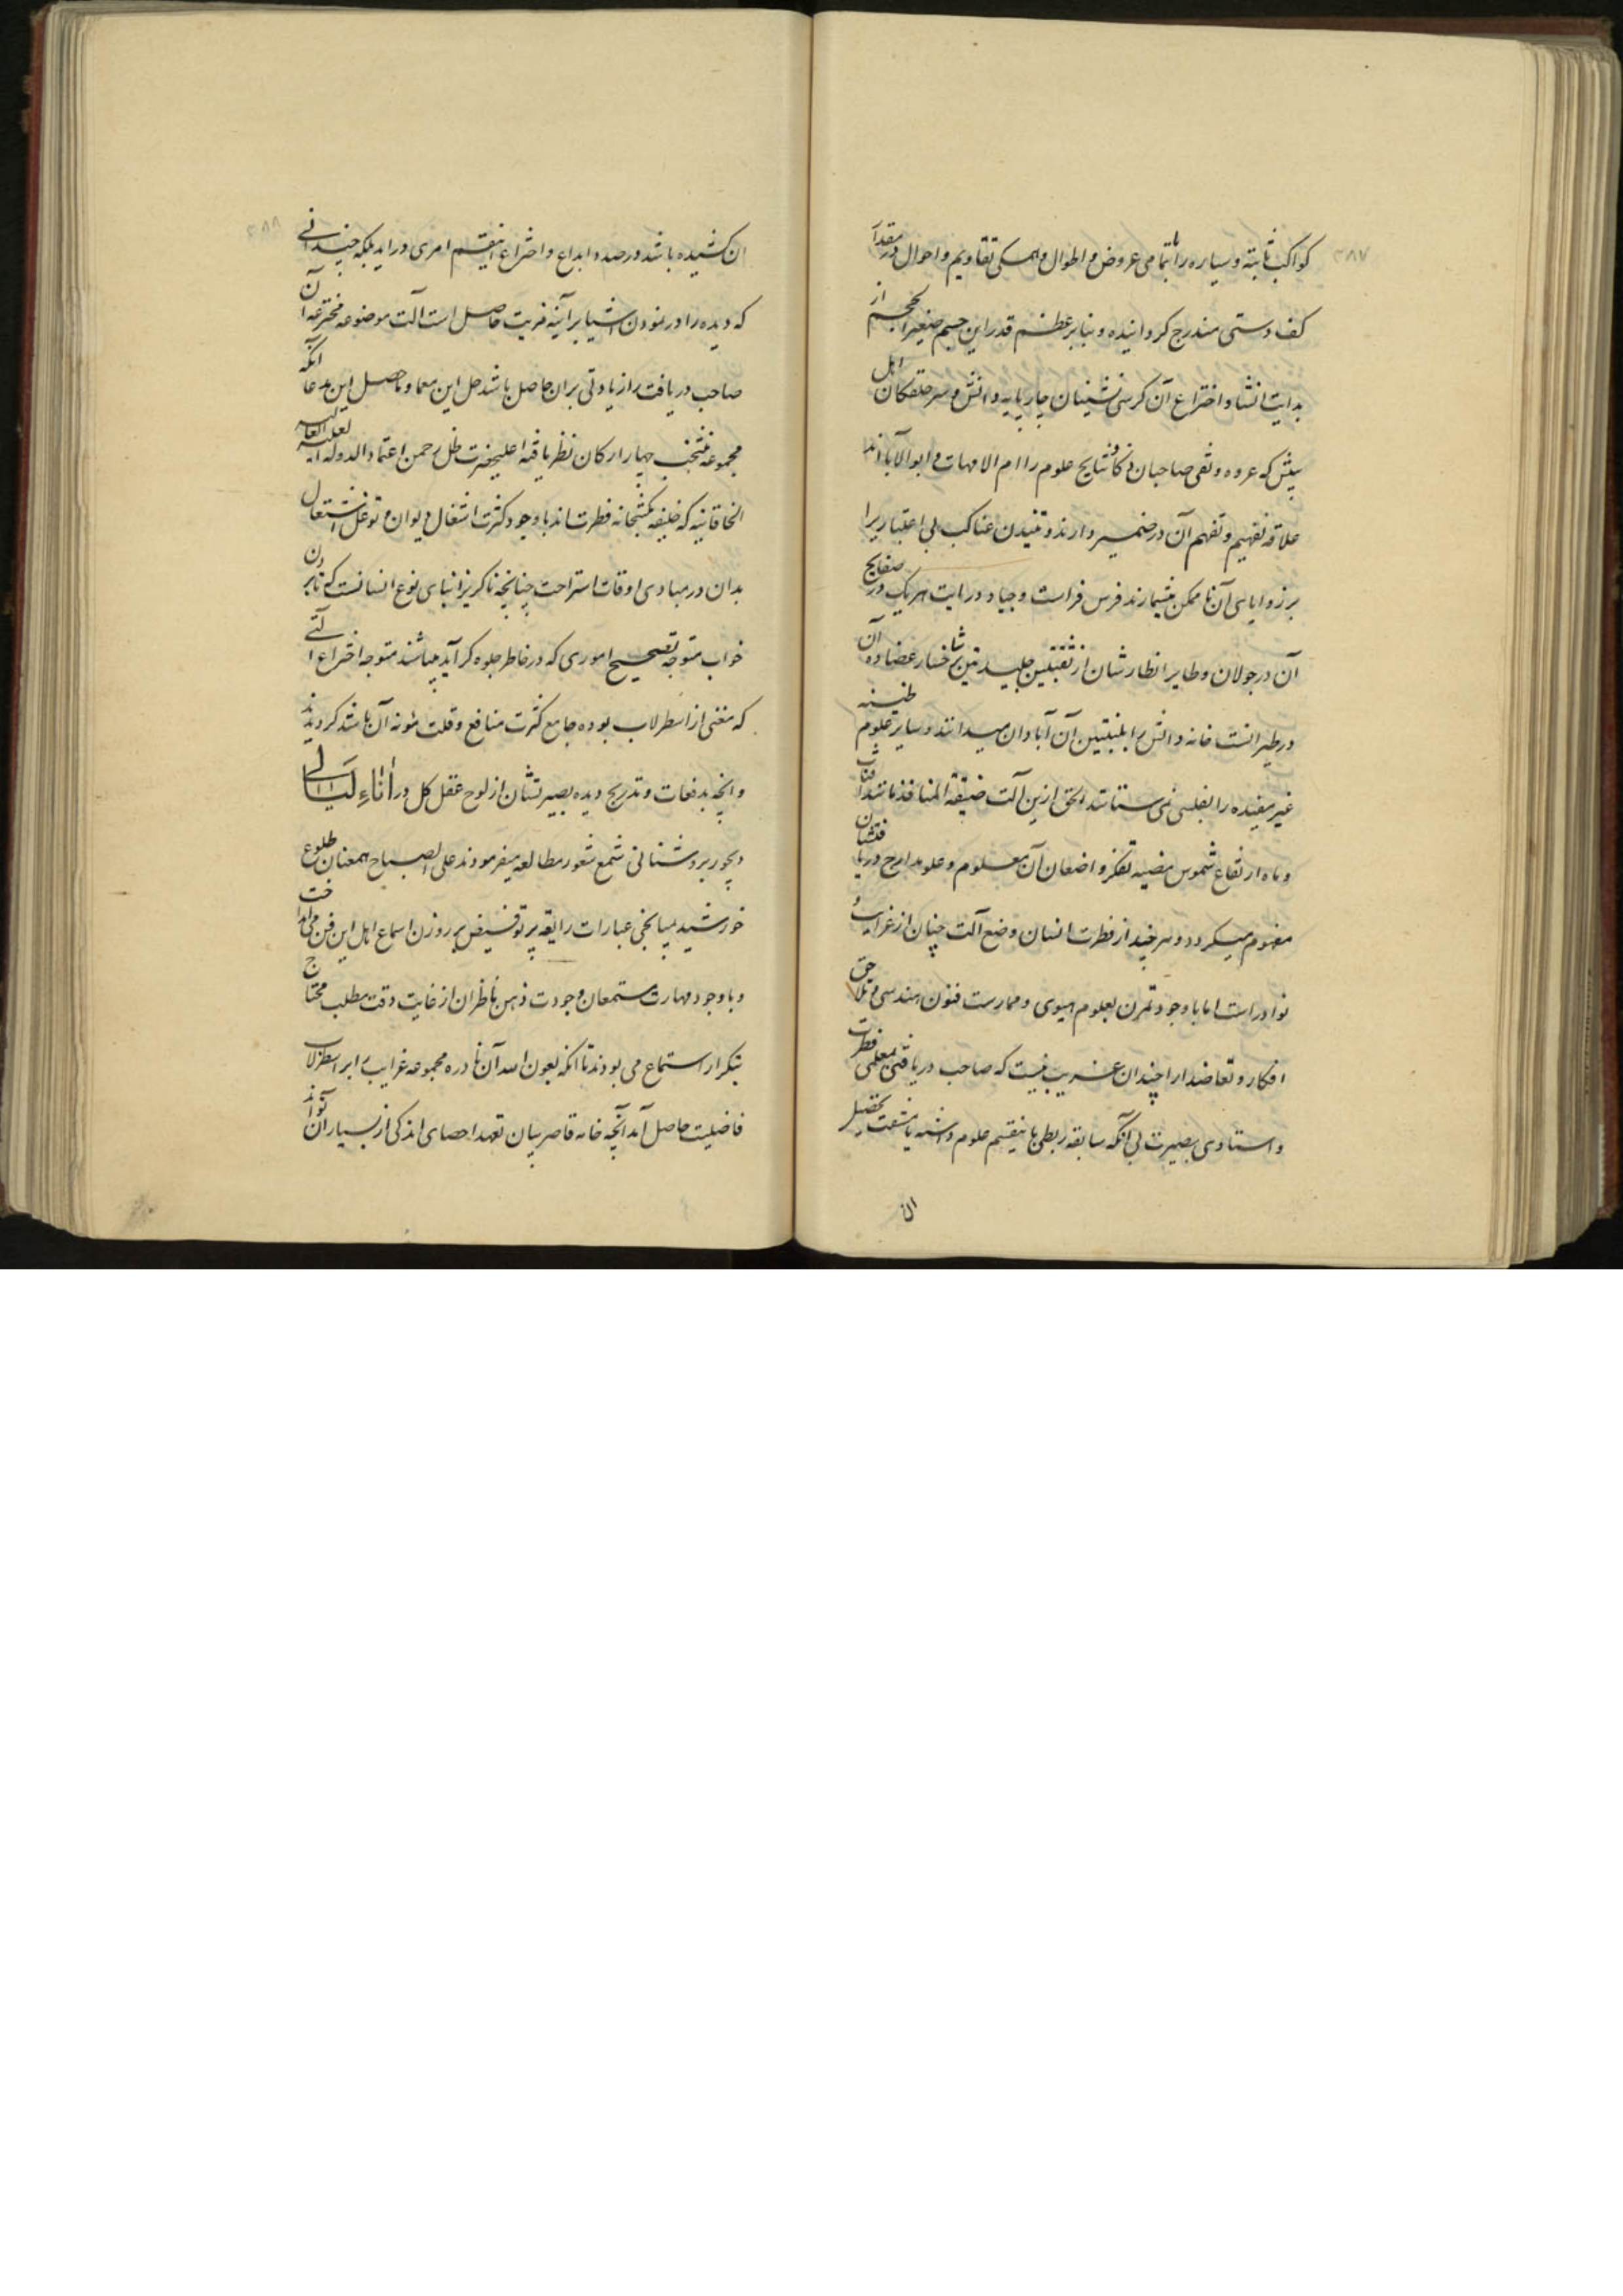 ۲۸۷
کواکب ثابته و سیاره را بتمامی عروض و اطوال و همکی تقاویم و احوال در مقدار
کف دستی مندرج کردانیده و بنابر عظم قدر این جسم صغیر الحجم از
بدایت انشا و اختراع آن کرسی نشینان چارپایه دانش و سرحلقکان اهل
بینش که عروه وثقی صاحبان ذکا و نتایج علوم را ام الامهات و ابو الاباء اند
علاقه تفهیم و تفهم آن در ضمیر دارند و تنیدن عناکب بی اعتبار یرا
بر زوایای آن ناممکن میشمارند فرس فراست و جیاد درایت هریک در صفایح
آن در جولان و طایر انظارشان از ثقبتین جلیدتین بر شاخسار عضاده آن
در طیرانست خانه دانش را بلبنتین آن آبادان میدانند و سایر علوم ظنینه
غیر مفیده را بفلسی نمی ستانند الحق ازین آلت ضیقة المنافذ مانند آفتاب
و ماه ارتفاع شموس مضیه تفکر و اضعان آن معلوم و علو مدارج دریافتشان
مفهوم میکردد و هر چند از فطرت انسان وضع آلت چنان از غرایب و
نوادر است اما با وجود تمرن بعلوم هیوی و ممارست فنون هندسی و تلاحق
افکار و تعاضد ارا چندان غریب نیست که صاحب دریافتی بمعلمی فطرت
و استادی بصیرت بی آنکه سابقه ربطی باینقسم علوم داشته یا مشقت تحصیل
ان
۲۸۸
ان کشیده باشد در صدد ابداع و اختراع اینقسم امری دراید بلکه چندانی
که دیده را در نمودن اشیا بر آئینه مزیت حاصل است آلت موضوعه مخترعه آن
صاحب دریافت را زیادتی بران حاصل باشد حل این معما و ماحصل این مدعا آنکه
مجموعه منتخب چهار ارکان نظر یافته اعلیحضرت ظل رحمن اعتماد الدوله العلیه العالیه
الخاقانیه که خلیفه مکتبخانه فطرت اند با وجود کثرت اشغال دیوان و توغل اشتغال
بدان در مبادی اوقات استراحت چنانچه ناکریز ابنای نوع انسانست که تا بردن
خواب متوجه تصحیح اموری که در خاطر جلوه کر آید میباشند متوجه اختراع آلتی
که مغنی از اسطرلاب بوده جامع کثرت منافع و قلت مئونه آن باشد کردیدند
و انچه بدفعات و تدریج دیده بصیرتشان از لوح عقل کل در أثاءِ لَیَالی
دیجور بروشنائی شمع شعور مطالعه میفرمودند علی الصباح همعنان طلوع
خورشید بمیانجی عبارات رایقه پرتو فیض بر روزن اسماع اهل این فن می انداخت
و با وجود مهارت مستمعان و جودت ذهن ناظران از غایت دقت مطلب محتاج
بتکرار استماع می بودند تا انکه بعون الله آن نادره مجموعه غرایب را بر اسطرلاب
فاضلیت حاصل آمد آنچه خامه قاصر بیان تعهد احصای اندکی از بسیار آن تواند